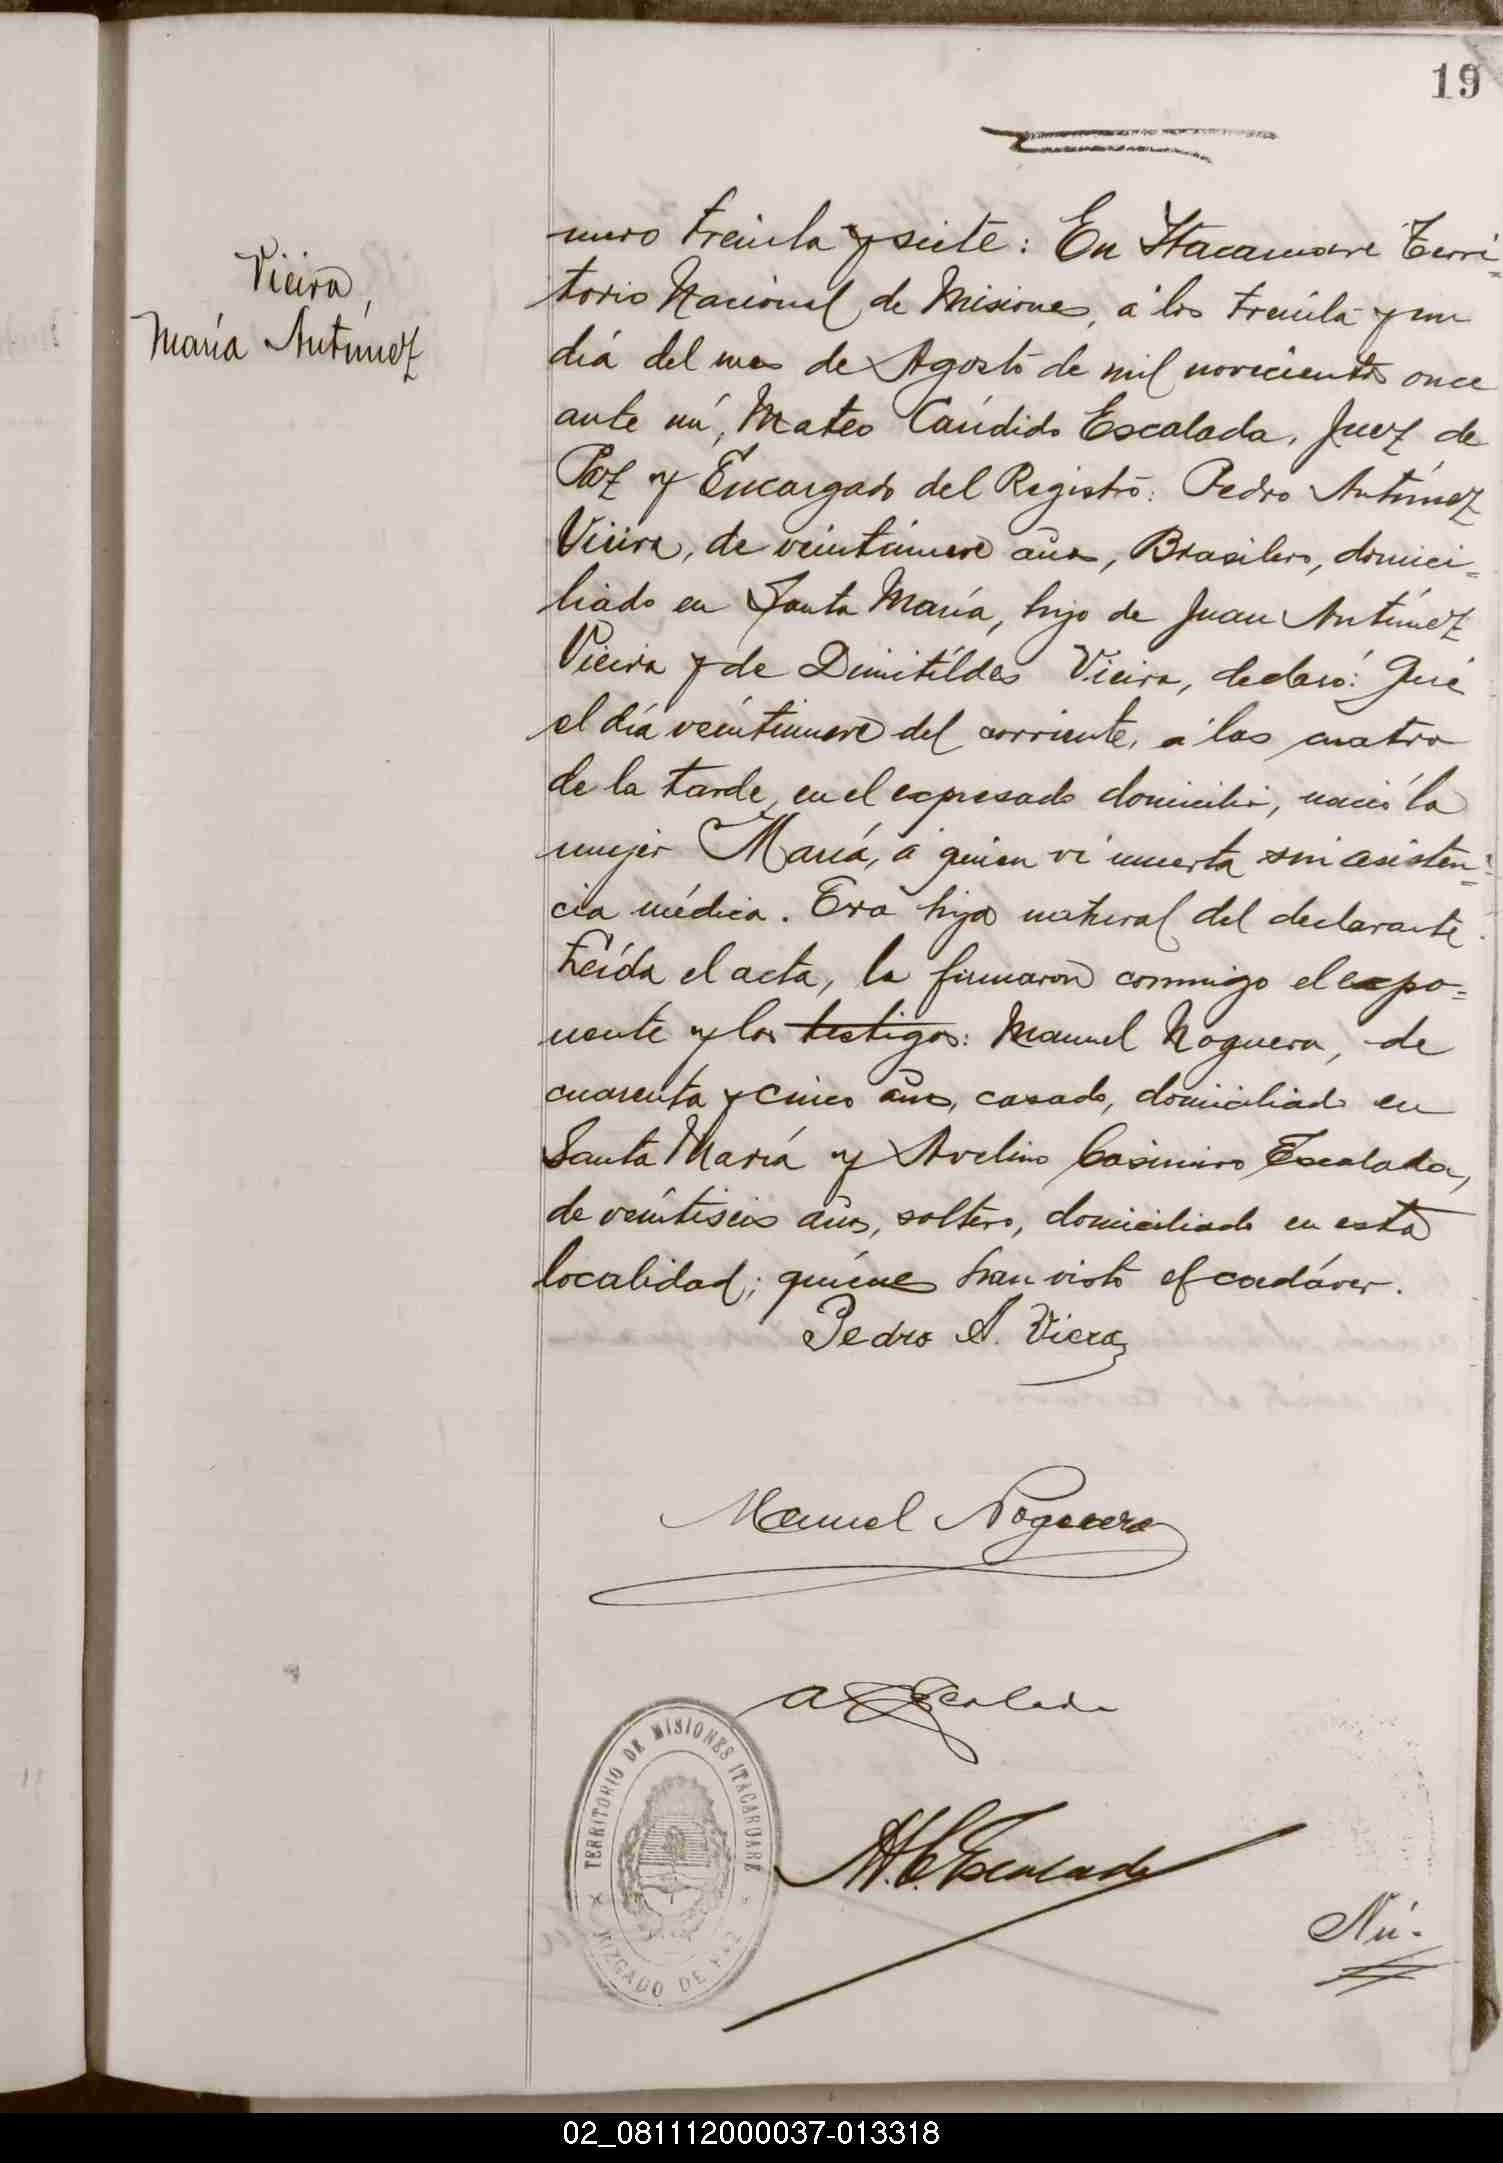 19
Vieira,
María Antúnez
mero treinta y siete: En Itacaruaré Terri=
torio Nacional de Misiones, á los treinta y un
día del mes de Agosto de mil novecientos once
ante mí, Mateo Cándido Escalada, Juez de
Paz y Encargado del Registro: Pedro Antúnez
Vieira, de veintinueve años, Brasilero, domici=
liado en Santa María, hijo de Juan Antúnez
Vieira y de Dimitildes Vieira, declaró: Qué
el día veintinueve del corriente, a las cuatro
de la tarde, en el expresado domicilio, nació la
mujer María, á quien ví muerta sin asisten=
cia médica. Era hija natural del declarante.
Leída el acta, la firmaron conmigo el expo=
nente y los testigos: Manuel Noguera, de
cuarenta y cinco años, casado, domiciliado en
Santa María y Avelino Casimiro Escalada,
de veintiseis años, soltero, domiciliado en esta
localidad; quiénes han visto el cadáver.
Pedro A. Viera
Manuel Noguera
A C Escalada
TERRITORIO DE MISIONES ITACARUARE
JUZGADO DE PAZ
M. C. Escalada
Nú-
02_081112000037-013318